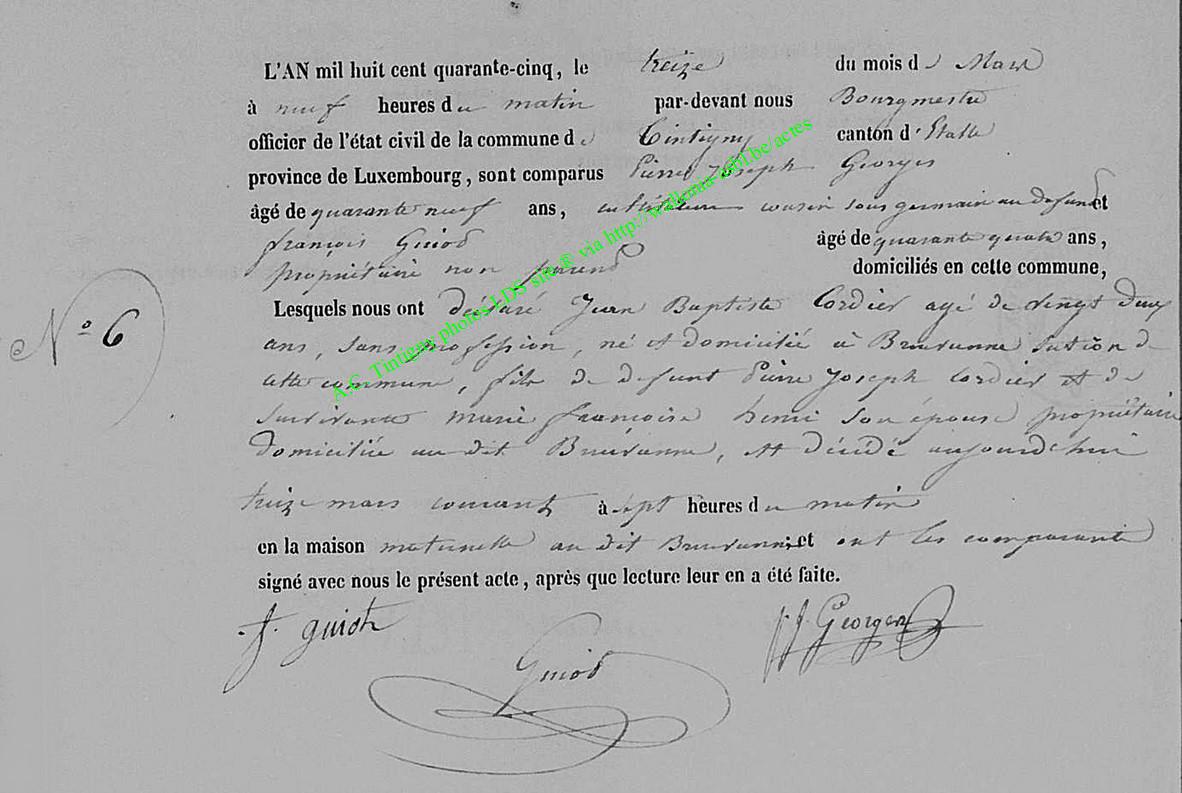 L'AN mil huit cent quarante-cinq, le treize du mois de Mars
à neuf heures du matin par-devant nous Bourgmestre
officier de l'état civil de la commune de Tintigny canton d'Etalle
province de Luxembourg, sont comparus Pierre Joseph Georges
âgé de quarante neuf ans, cultivateur cousin sous germain au defunt et
françois Guiod âgé de quarante quatre ans,
propriétaire non parend domiciliés en cette commune,
Lesquels nous ont déclaré Jean Baptiste Cordier agé de vingt deux
ans, sans profession, né et domicilié à Breuvanne section de
cette commune, fils de defunt Pierre Joseph Cordier et de
survivante marie françoise henri son épouse propriétaire
domiciliée au dit Breuvanne, est décédé aujourdehui
treize mars courant à sept heures du matin
en la maison maternelle au dit Breuvanne, et ont les comparants
signé avec nous le présent acte, après que lecture leur en a été faite.
N° 6
f. guiot
Guiod
P. J. Georges
A.C. Tintigny photos LDS site ® via http://wallonia-asbl.be/actes